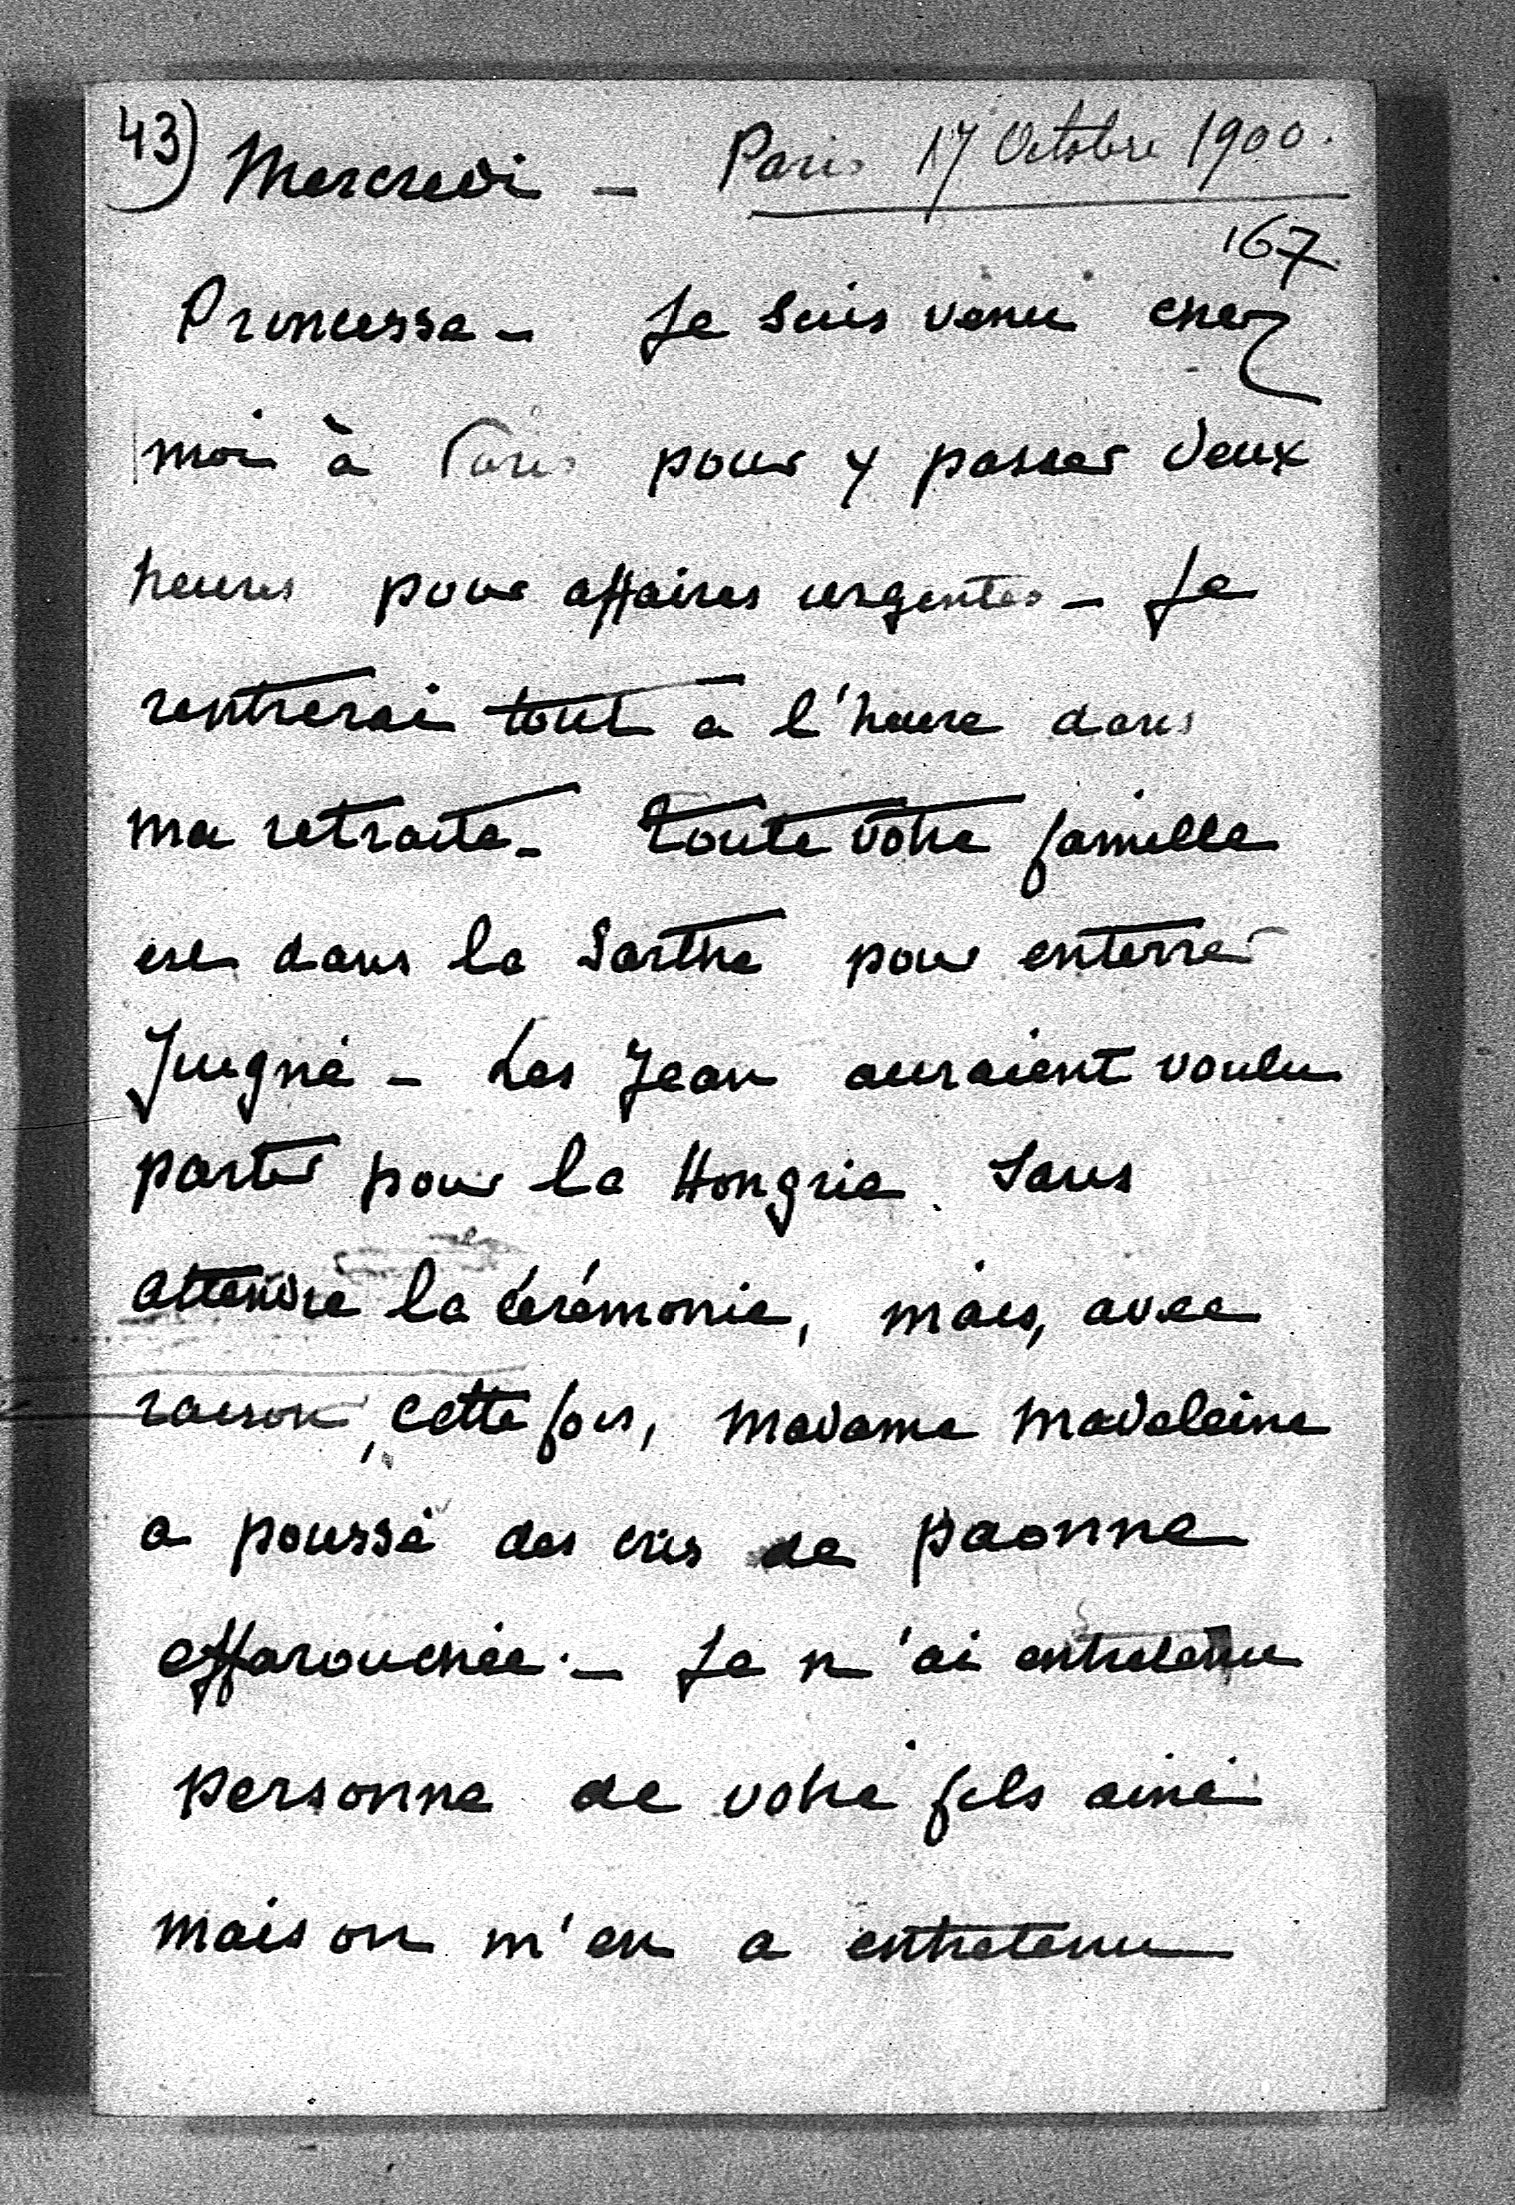 43) Mercredi - Paris 17 Octobre 1900.
167
Princesse - Je suis venu chez
moi à Paris pour y passer deux
heures pour affaires urgentes - Je
rentrerai tout à l'heure dans
ma retraite - Toute votre famille
est dans la Sarthe pour enterrer
Juigné - Les Jean auraient voulu
partir pour la Hongrie sans
attendre la cérémonie, mais, avec
raison, cette fois, Madame Madeleine
a poussé des cris de paonne
effarouchée. - Je n'ai entretenu
personne de votre fils ainé
mais on m'en a entretenu